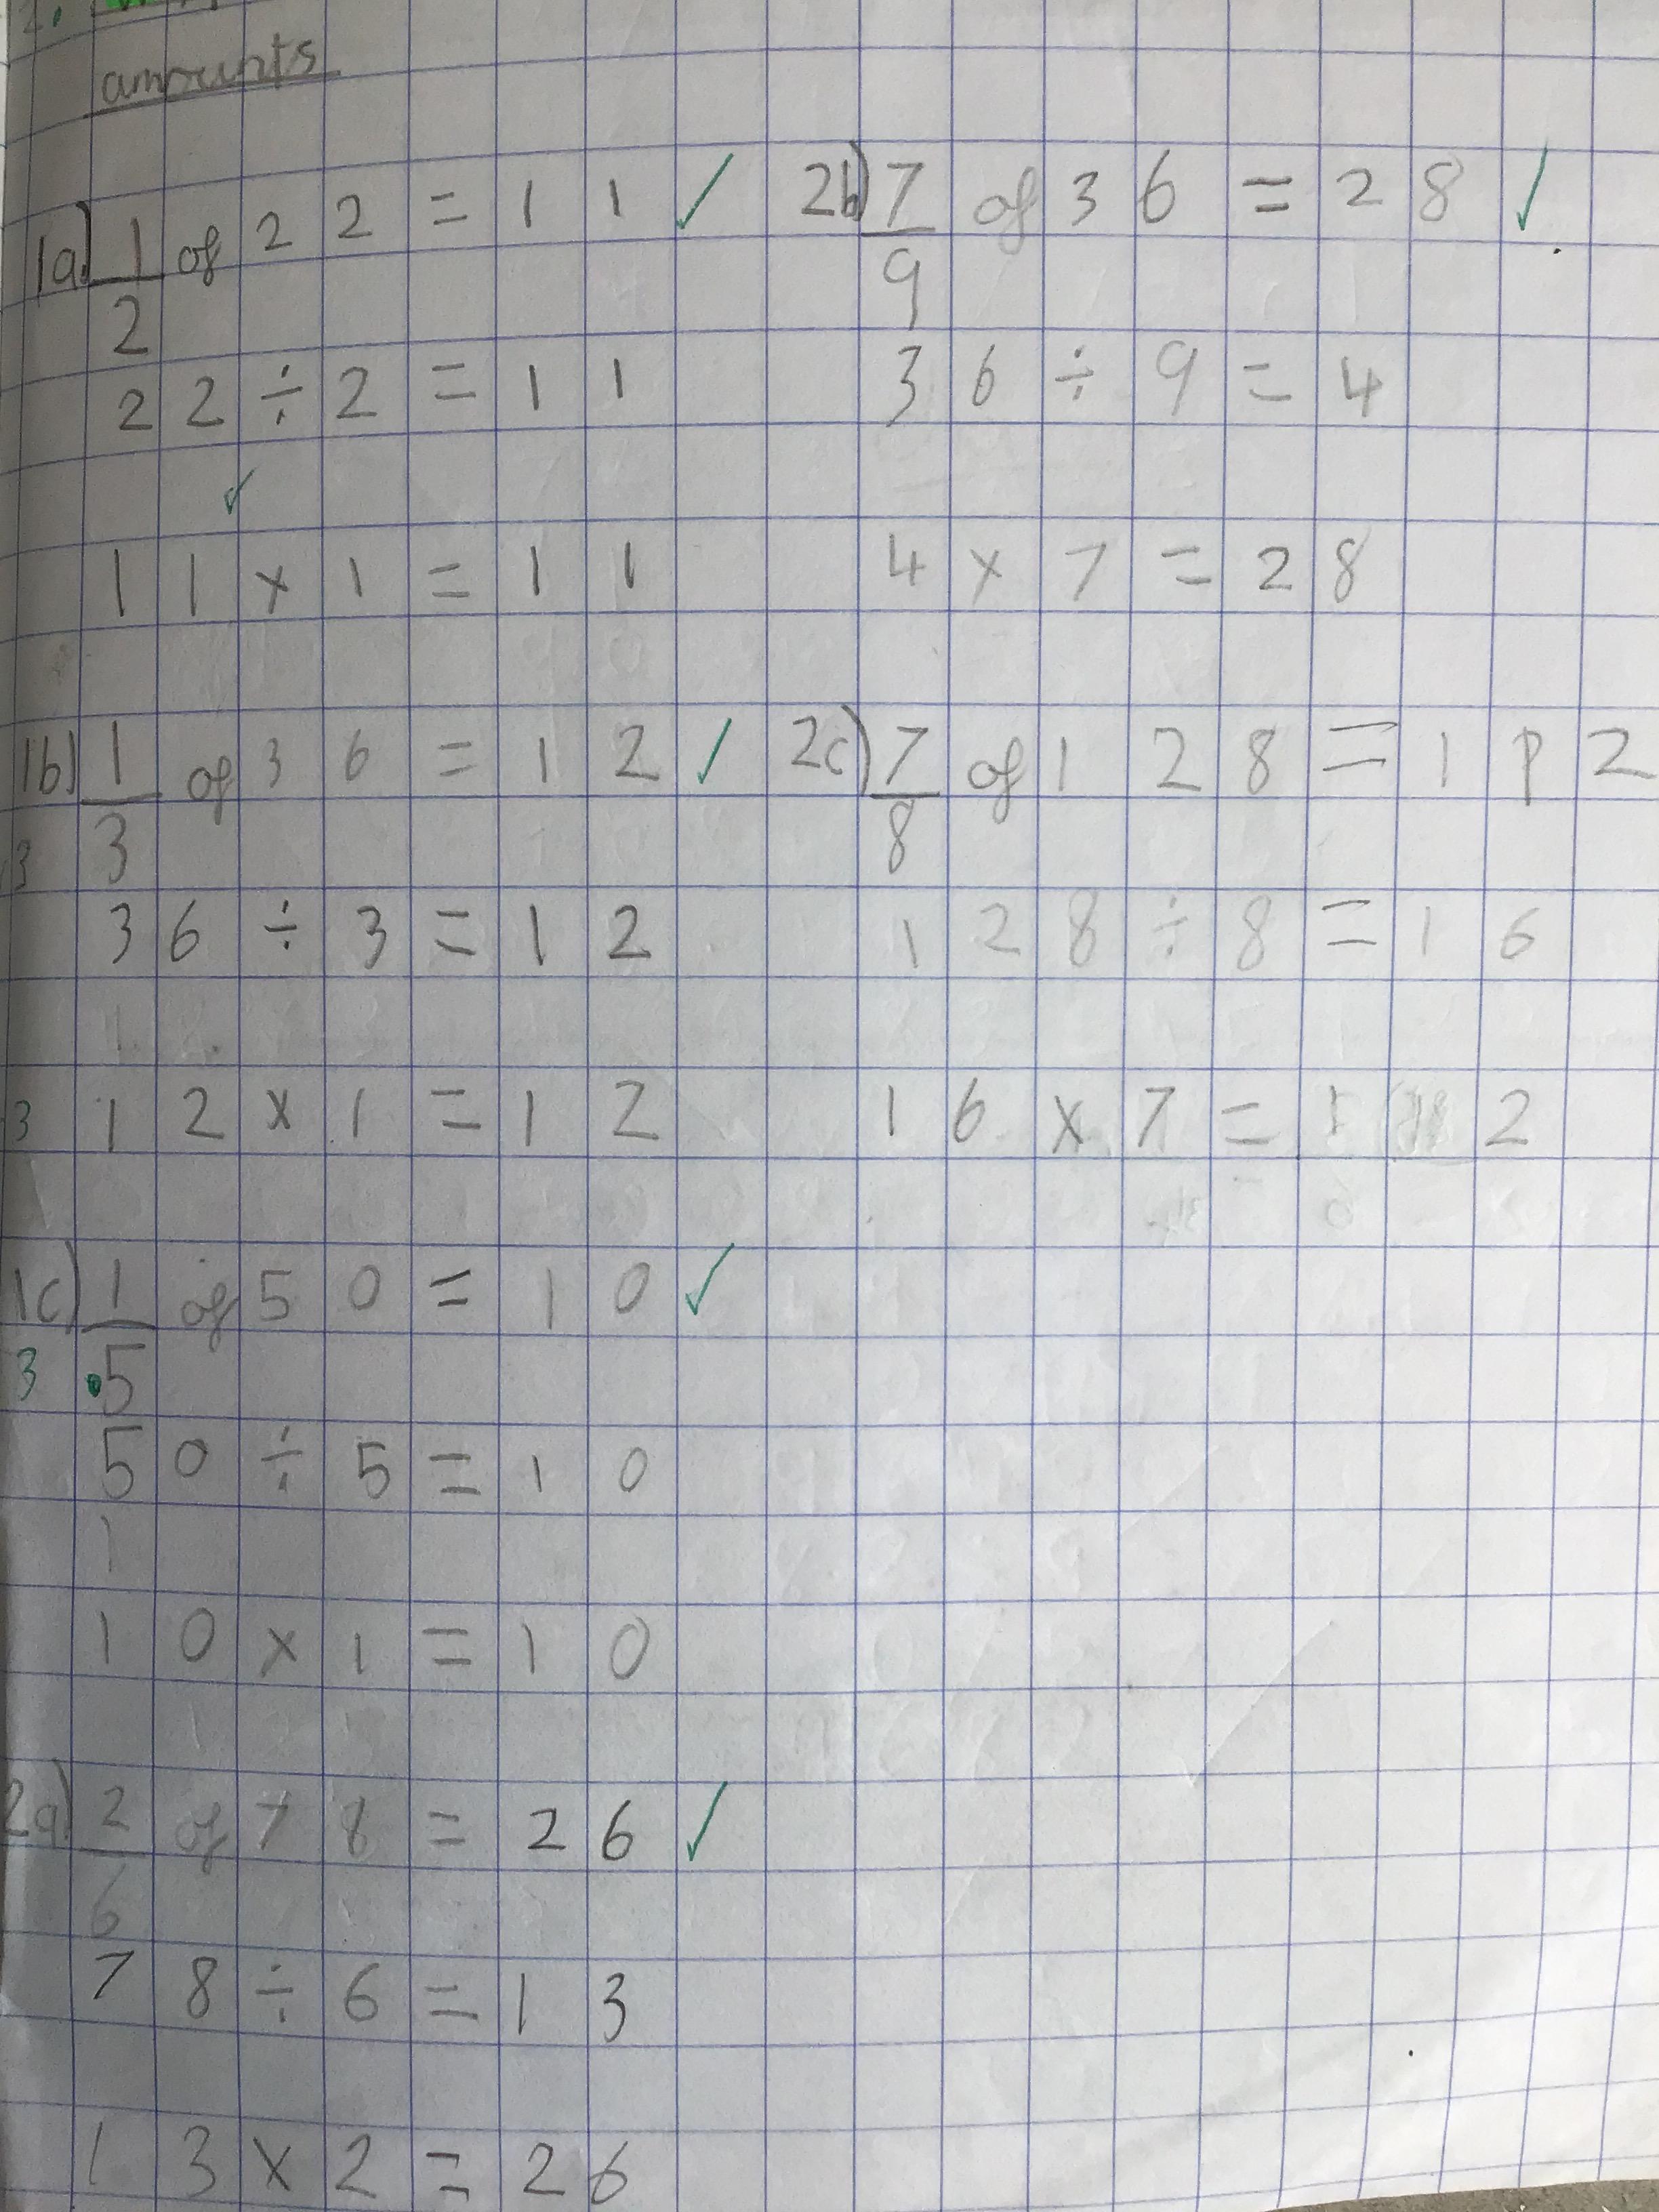 amounts
1a) 1/2 of 22 = 11 ✓
22 ÷ 2 = 11
✓
11 x 1 = 11
1b) 1/3 of 36 = 12 ✓
3
36 ÷ 3 = 12
3 12 x 1 = 12
1c) 1/5 of 50 = 10 ✓
3
50 ÷ 5 = 10
1
10 x 1 = 10
2a) 2/6 of 78 = 26 ✓
78 ÷ 6 = 13
13 x 2 = 26
2b) 7/9 of 36 = 28 ✓
36 ÷ 9 = 4
4 x 7 = 28
2c) 7/8 of 128 = 112
128 ÷ 8 = 16
16 x 7 = 112